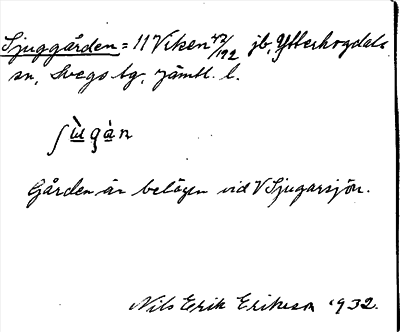 Sjuggården = 11 Viken 42/192 jb, Ytterhogdals
sn, Svegs tg, Jämtl. l.
ʃùgàn
Gården är belägen vid V Sjugarsjön.
Nils Erik Erikson 1932.